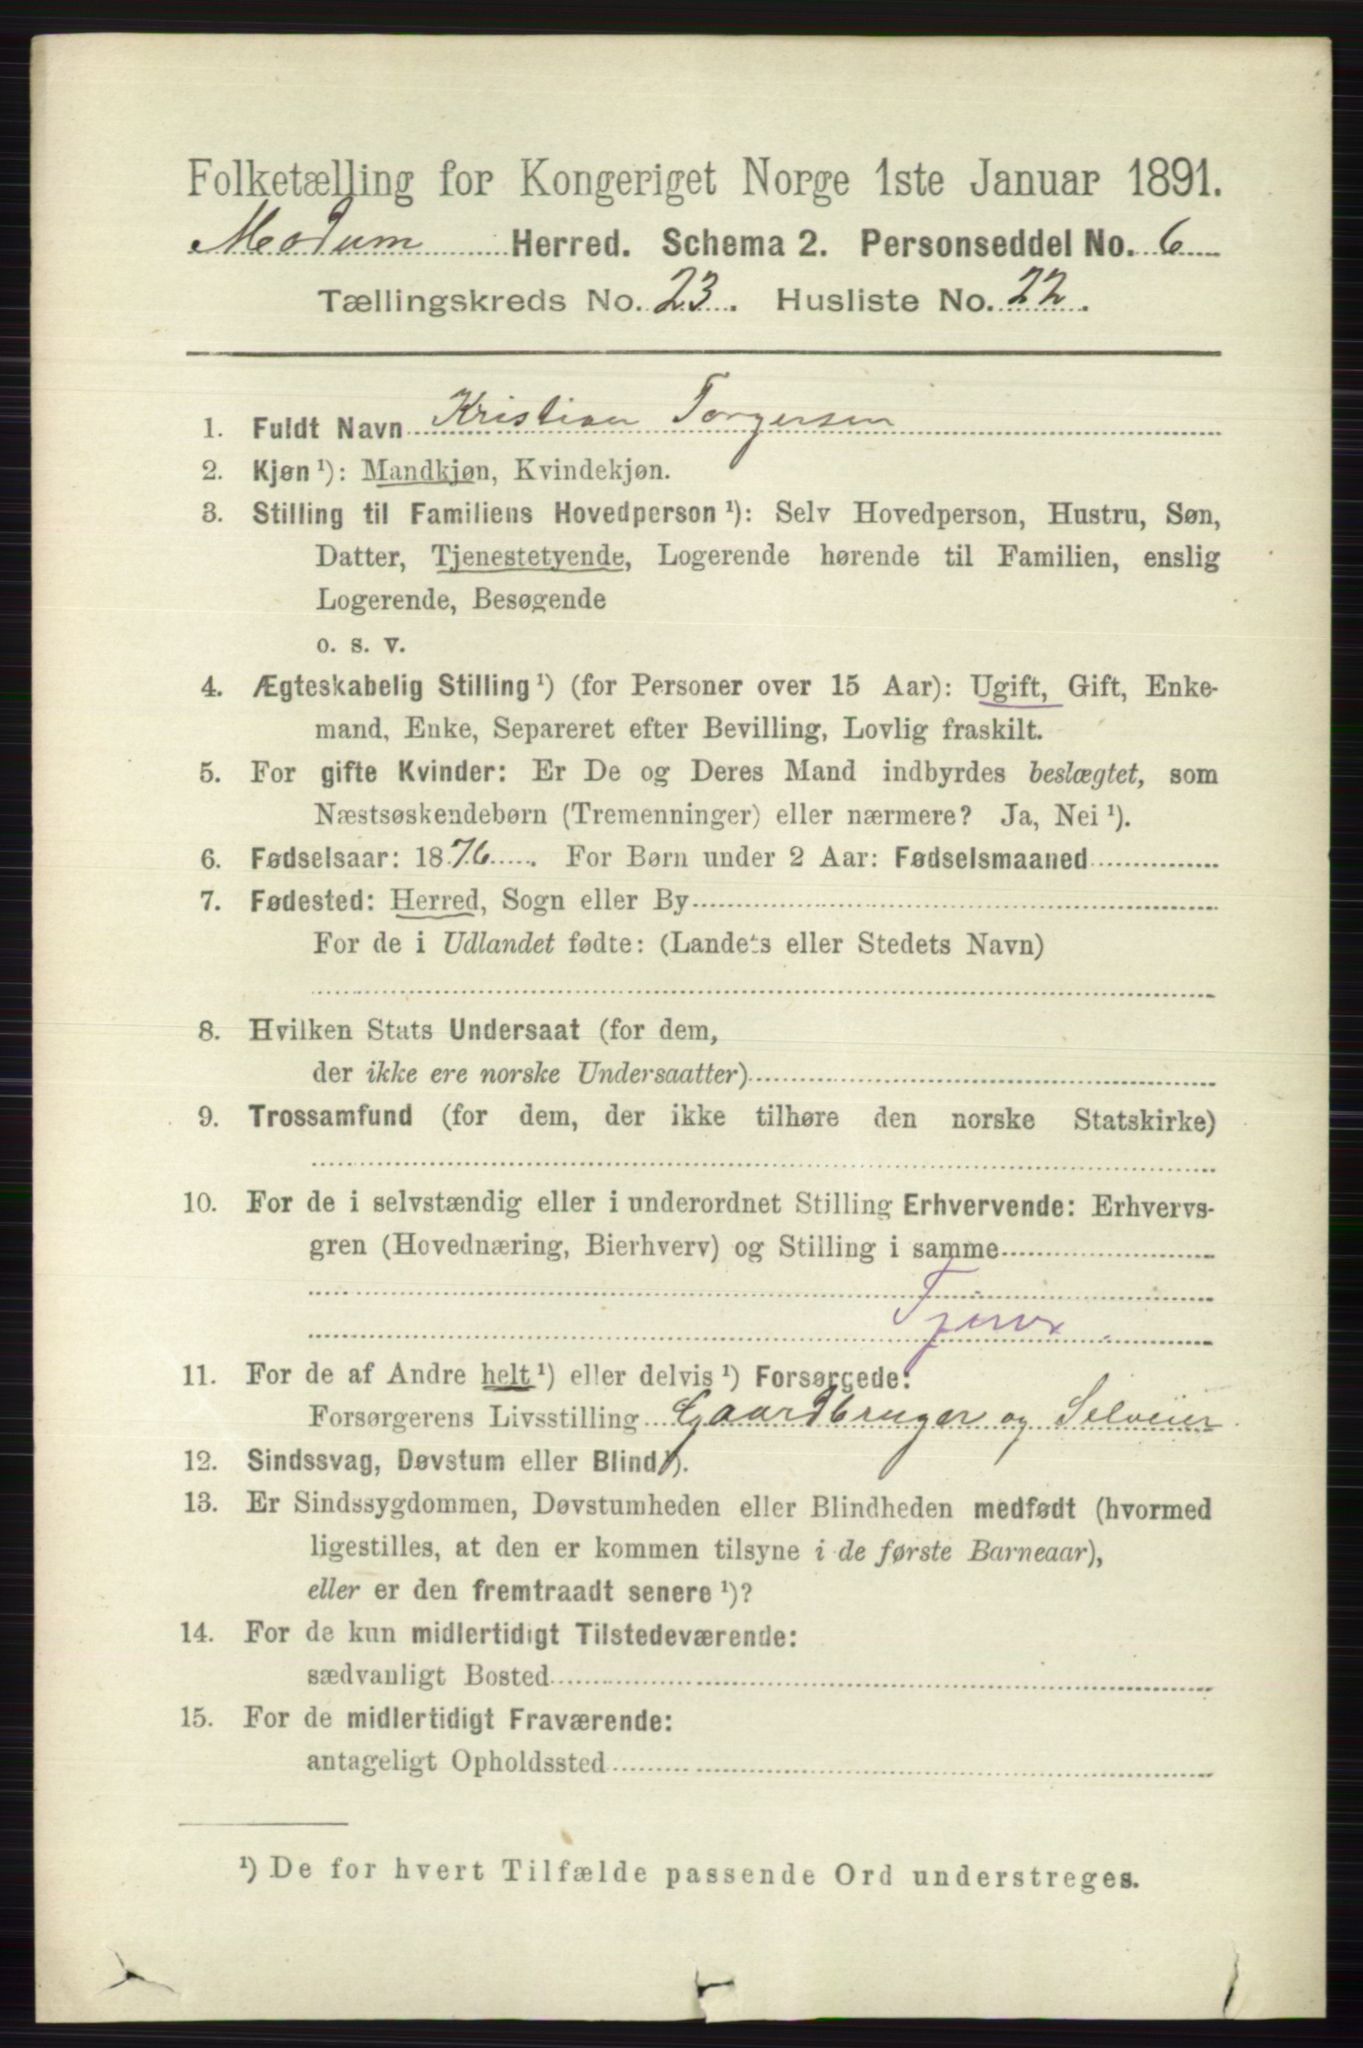 Folketælling for Kongeriget Norge 1ste Januar 1891.
Modum Herred. Schema 2. Personseddel No. 6
Tællingskreds No. 23. Husliste No. 22.
1. Fuldt Navn Kristian Torgersen
2. Kjøn ¹): Mandkjøn, Kvindekjøn.
3. Stilling til Familiens Hovedperson ¹): Selv Hovedperson, Hustru, Søn,
Datter, Tjenestetyende, Logerende hørende til Familien, enslig
Logerende, Besøgende
o. s. v.
4. Ægteskabelig Stilling ¹) (for Personer over 15 Aar): Ugift, Gift, Enke-
mand, Enke, Separeret efter Bevilling, Lovlig fraskilt.
5. For gifte Kvinder: Er De og Deres Mand indbyrdes beslægtet, som
Næstsøskendebørn (Tremenninger) eller nærmere? Ja, Nei ¹).
6. Fødselsaar: 1876. For Børn under 2 Aar: Fødselsmaaned
7. Fødested: Herred, Sogn eller By
For de i Udlandet fødte: (Landets eller Stedets Navn)
8. Hvilken Stats Undersaat (for dem,
der ikke ere norske Undersaatter)
9. Trossamfund (for dem, der ikke tilhøre den norske Statskirke)
10. For de i selvstændig eller i underordnet Stilling Erhvervende: Erhvervs-
gren (Hovednæring, Bierhverv) og Stilling i samme
11. For de af Andre helt ¹) eller delvis ¹) Forsørgede:
Forsørgerens Livsstilling Gaardbruger og Selveier
12. Sindssvag, Døvstum eller Blind ¹).
13. Er Sindssygdommen, Døvstumheden eller Blindheden medfødt (hvormed
ligestilles, at den er kommen tilsyne i de første Barneaar),
eller er den fremtraadt senere ¹)?
14. For de kun midlertidigt Tilstedeværende:
sædvanligt Bosted
15. For de midlertidigt Fraværende:
antageligt Opholdssted
¹) De for hvert Tilfælde passende Ord understreges.